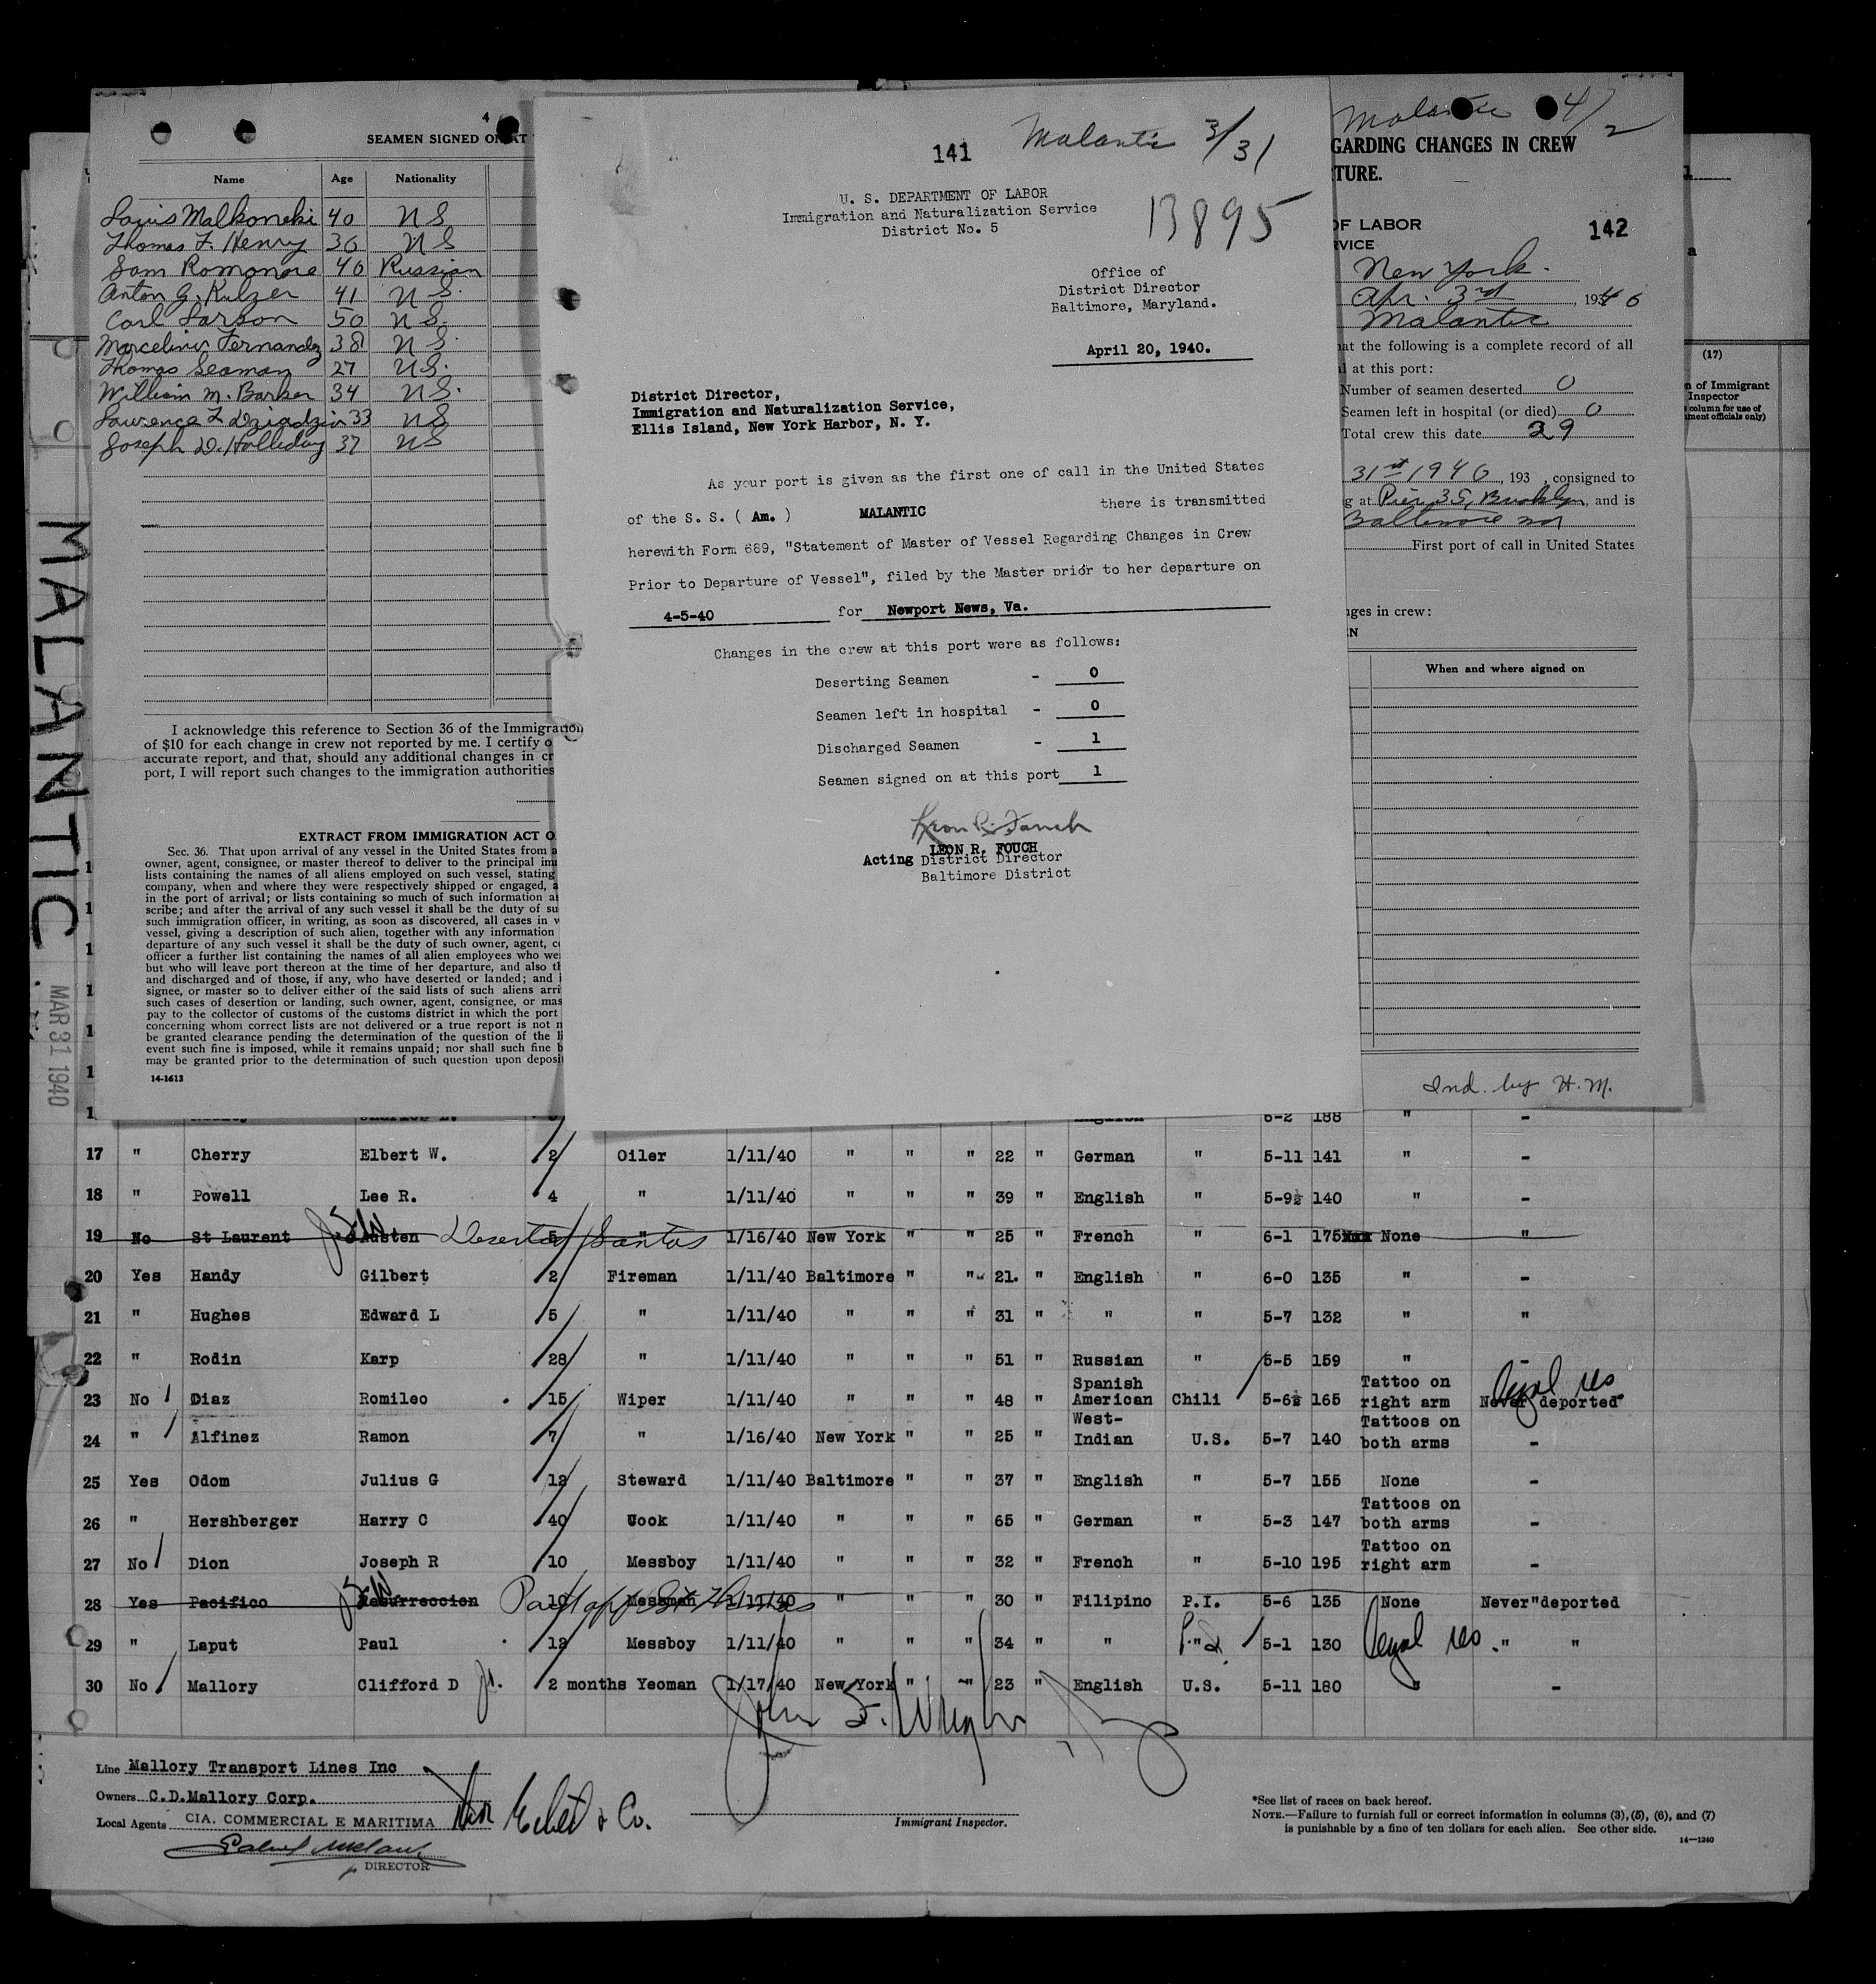 4
SEAMEN SIGNED ON AT
Name Age Nationality
Louis Malkonski 40 U S
Thomas F. Henry 30 U S
Sam Romonore 40 Russian
Anton G. Kulzer 41 U S.
Carl Larson 50 U S.
Marcelino Fernandez 38 U S.
Thomas Seaman 27 U.S.
William M. Barker 34 U S.
Laurence F Dziadzio 33 U S
Joseph D. Holliday 37 U S
I acknowledge this reference to Section 36 of the Immigration
of $10 for each change in crew not reported by me. I certify
accurate report, and that, should any additional changes in
port, I will report such changes to the immigration authorities
EXTRACT FROM IMMIGRATION ACT
Sec. 36. That upon arrival of any vessel in the United States from
owner, agent, consignee, or master thereof to deliver to the principal
lists containing the names of all aliens employed on such vessel, stating
company, when and where they were respectively shipped or engaged,
in the port of arrival; or lists containing so much of such information
scribe; and after the arrival of any such vessel it shall be the duty of
such immigration officer, in writing, as soon as discovered, all cases in
vessel, giving a description of such alien, together with any information
departure of any such vessel it shall be the duty of such owner, agent,
officer a further list containing the names of all alien employees who
but who will leave port thereon at the time of her departure, and also
and discharged and of those, if any, who have deserted or landed; and
signee, or master so to deliver either of the said lists of such aliens
such cases of desertion or landing, such owner, agent, consignee, or
pay to the collector of customs of the customs district in which the port
concerning whom correct lists are not delivered or a true report is not
be granted clearance pending the determination of the question of the
event such fine is imposed, while it remains unpaid; nor shall such fine
may be granted prior to the determination of such question upon
14-1613
MALANTIC.
MAR 31 1940
141
Malantic 3/31
13895
U. S. DEPARTMENT OF LABOR
Immigration and Naturalization Service
District No. 5
Office of
District Director
Baltimore, Maryland.
April 20, 1940.
District Director,
Immigration and Naturalization Service,
Ellis Island, New York Harbor, N. Y.
As your port is given as the first one of call in the United States
of the S. S. ( Am. ) MALANTIC there is transmitted
herewith Form 689, "Statement of Master of Vessel Regarding Changes in Crew
Prior to Departure of Vessel", filed by the Master prior to her departure on
4-5-40 for Newport News, Va.
Changes in the crew at this port were as follows:
Deserting Seamen - 0
Seamen left in hospital - 0
Discharged Seamen - 1
Seamen signed on at this port 1
Leon R. Fouch
LEON R. FOUCH
Acting District Director
Baltimore District
Malantic 4/2
GARDING CHANGES IN CREW
TURE.
OF LABOR
RVICE
142
New York.
Apr. 3rd, 1940
Malantic
at the following is a complete record of all
at this port:
Number of seamen deserted 0
Seamen left in hospital (or died) 0
Total crew this date 29
31st 1940, 193 , consigned to
g at Pier 35, Brooklyn, and is
Baltimore Md
First port of call in United States
ges in crew:
When and where signed on
Ind. by H.M.
(17)
of Immigrant
Inspector
column for use of
officials only)
6-2 188 " -
17 " Cherry Elbert W. 2 Oiler 1/11/40 " " " 22 " German " 5-11 141 " -
18 " Powell Lee R. 4 " 1/11/40 " " " 39 " English " 5-9½ 140 " -
19 No St Laurent Austen Deserted Santos 5 " 1/16/40 New York " " 25 " French " 6-1 175 None "
20 Yes Handy Gilbert 2 Fireman 1/11/40 Baltimore " " 21. " English " 6-0 135 " -
21 " Hughes Edward L 5 " 1/11/40 " " " 31 " " " 5-7 132 " "
22 " Rodin Karp 28 " 1/11/40 " " " 51 " Russian " 5-5 159 " -
23 No Diaz Romileo 15 Wiper 1/11/40 " " " 48 " Spanish American Chili 5-6½ 165 Tattoo on right arm Never deported Legal res
24 " Alfinez Ramon 7 " 1/16/40 New York " " 25 " West-Indian U.S. 5-7 140 Tattoos on both arms -
25 Yes Odom Julius G 12 Steward 1/11/40 Baltimore " " 37 " English " 5-7 155 None -
26 " Hershberger Harry C 40 Cook 1/11/40 " " " 65 " German " 5-3 147 Tattoos on both arms -
27 No Dion Joseph R 10 Messboy 1/11/40 " " " 32 " French " 5-10 195 Tattoo on right arm -
28 Yes Pacifico Resurreccion Paid off St Thomas 10 Messman 1/11/40 " " " 30 " Filipino P.I. 5-6 135 None Never"deported
29 " Laput Paul 12 Messboy 1/11/40 " " " 34 " " P.I. 5-1 130 Legal res. " "
30 No Mallory Clifford D Jr. 2 months Yeoman 1/17/40 New York " " 23 " English U.S. 5-11 180 " -
Line Mallory Transport Lines Inc
Owners C.D.Mallory Corp.
Local Agents CIA. COMMERCIAL E MARITIMA
DIRECTOR
Immigrant Inspector.
*See list of races on back hereof.
NOTE.—Failure to furnish full or correct information in columns (3), (5), (6), and (7)
is punishable by a fine of ten dollars for each alien. See other side.
14-1240